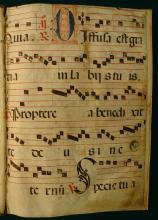 quia. ℣ Diffusa est gra
tia in labijs tu is.
℟ propterea benedixit
te deus in e
ternū ℣ Specie tua